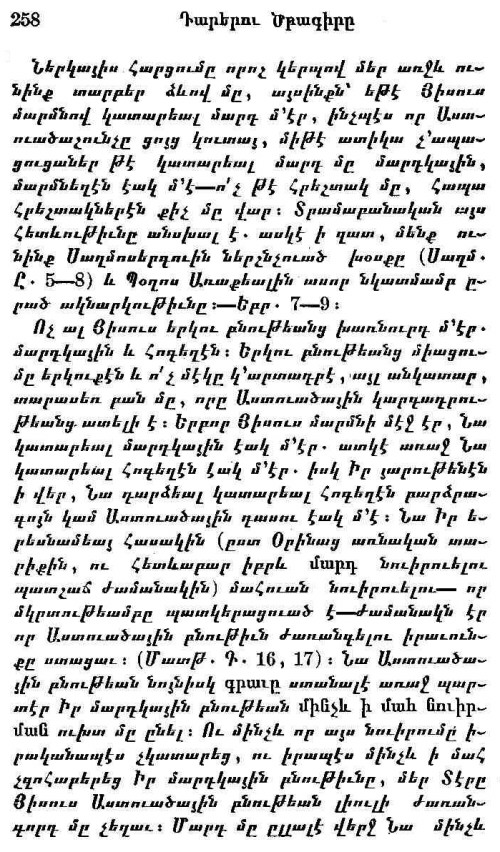 258 Դարերու Ծրագիրը
Ներկայիս Հարցումը որոշ կերպով մեր առջև ու-
նինք տարբեր ձևով մը, այսինքն՝ եթէ Յիսուս
մարմնով կատարեալ մարդ մ՚էր, ինչպէս որ Աստ-
ուածաշունչը ցոյց կուտայ, միթէ ատիկա չ՚ապա-
ցուցաներ թէ կատարեալ մարդ մը մարդկային,
մարմնեղէն էակ մ՚է—ո՛չ թէ Հրեշտակ մը, Հապա
Հրեշտակներէն քիչ մը վար։ Տրամաբանական այս
Հետևութիւնը անսխալ է. ասկէ ի զատ, մենք ու-
նինք Սաղմոսերգուին ներշնչուած խօսքը (Սաղմ.
Ը. 5—8) և Պօղոս Առաքեալին ասոր նկատմամբ ը-
րած ակնարկութիւնը։—Եբր. 7—9։
Ոչ ալ Յիսուս երկու բնութեանց խառնուրդ մ՚էր.
մարդկային և Հոգեղէն։ Երկու բնութեանց միացու-
մը երկուքէն և ո՛չ մէկը կ՚արտադրէ, այլ անկատար,
տարասեռ բան մը, որը Աստուածային կարգադրու-
թեանց ատելի է։ Երբոր Յիսուս մարմնի մէջ էր, Նա
կատարեալ մարդկային էակ մ՚էր. ատկէ առաջ Նա
կատարեալ Հոգեղէն էակ մ՚էր. իսկ Իր յարութենէն
ի վեր, Նա դարձեալ կատարեալ Հոգեղէն բարձրա-
գոյն կամ Աստուածային դասու էակ մ՚է։ Նա Իր ե-
րեսնամեայ Հասակին (ըստ Օրինաց առնական տա-
րիքին, ու Հետևաբար իբրև մարդ նուիրուելու
պատշաճ ժամանակին) մահուան նուիրուելու— որ
մկրտութեամբը պատկերացուած է—ժամանակն էր
որ Աստուածային բնութիւն ժառանգելու իրաւուն-
քը ստացաւ։ (Մատթ. Գ. 16, 17)։ Նա Աստուածա-
յին բնութեան նոյնիսկ գրաւը ստանալէ առաջ պար-
տէր Իր մարդկային բնութեան մինչև ի մահ նուիր-
ման ուխտ մը ընել։ Ու մինչև որ այս նուիրումը ի-
րականապէս չկատարեց, ու իրապէս մինչև ի մահ
չզոհաբերեց Իր մարդկային բնութիւնը, մեր Տէրը
Յիսուս Աստուածային բնութեան լիուլի ժառան-
գորդ մը չեղաւ։ Մարդ մը ըլլալէ վերջ Նա մինչև